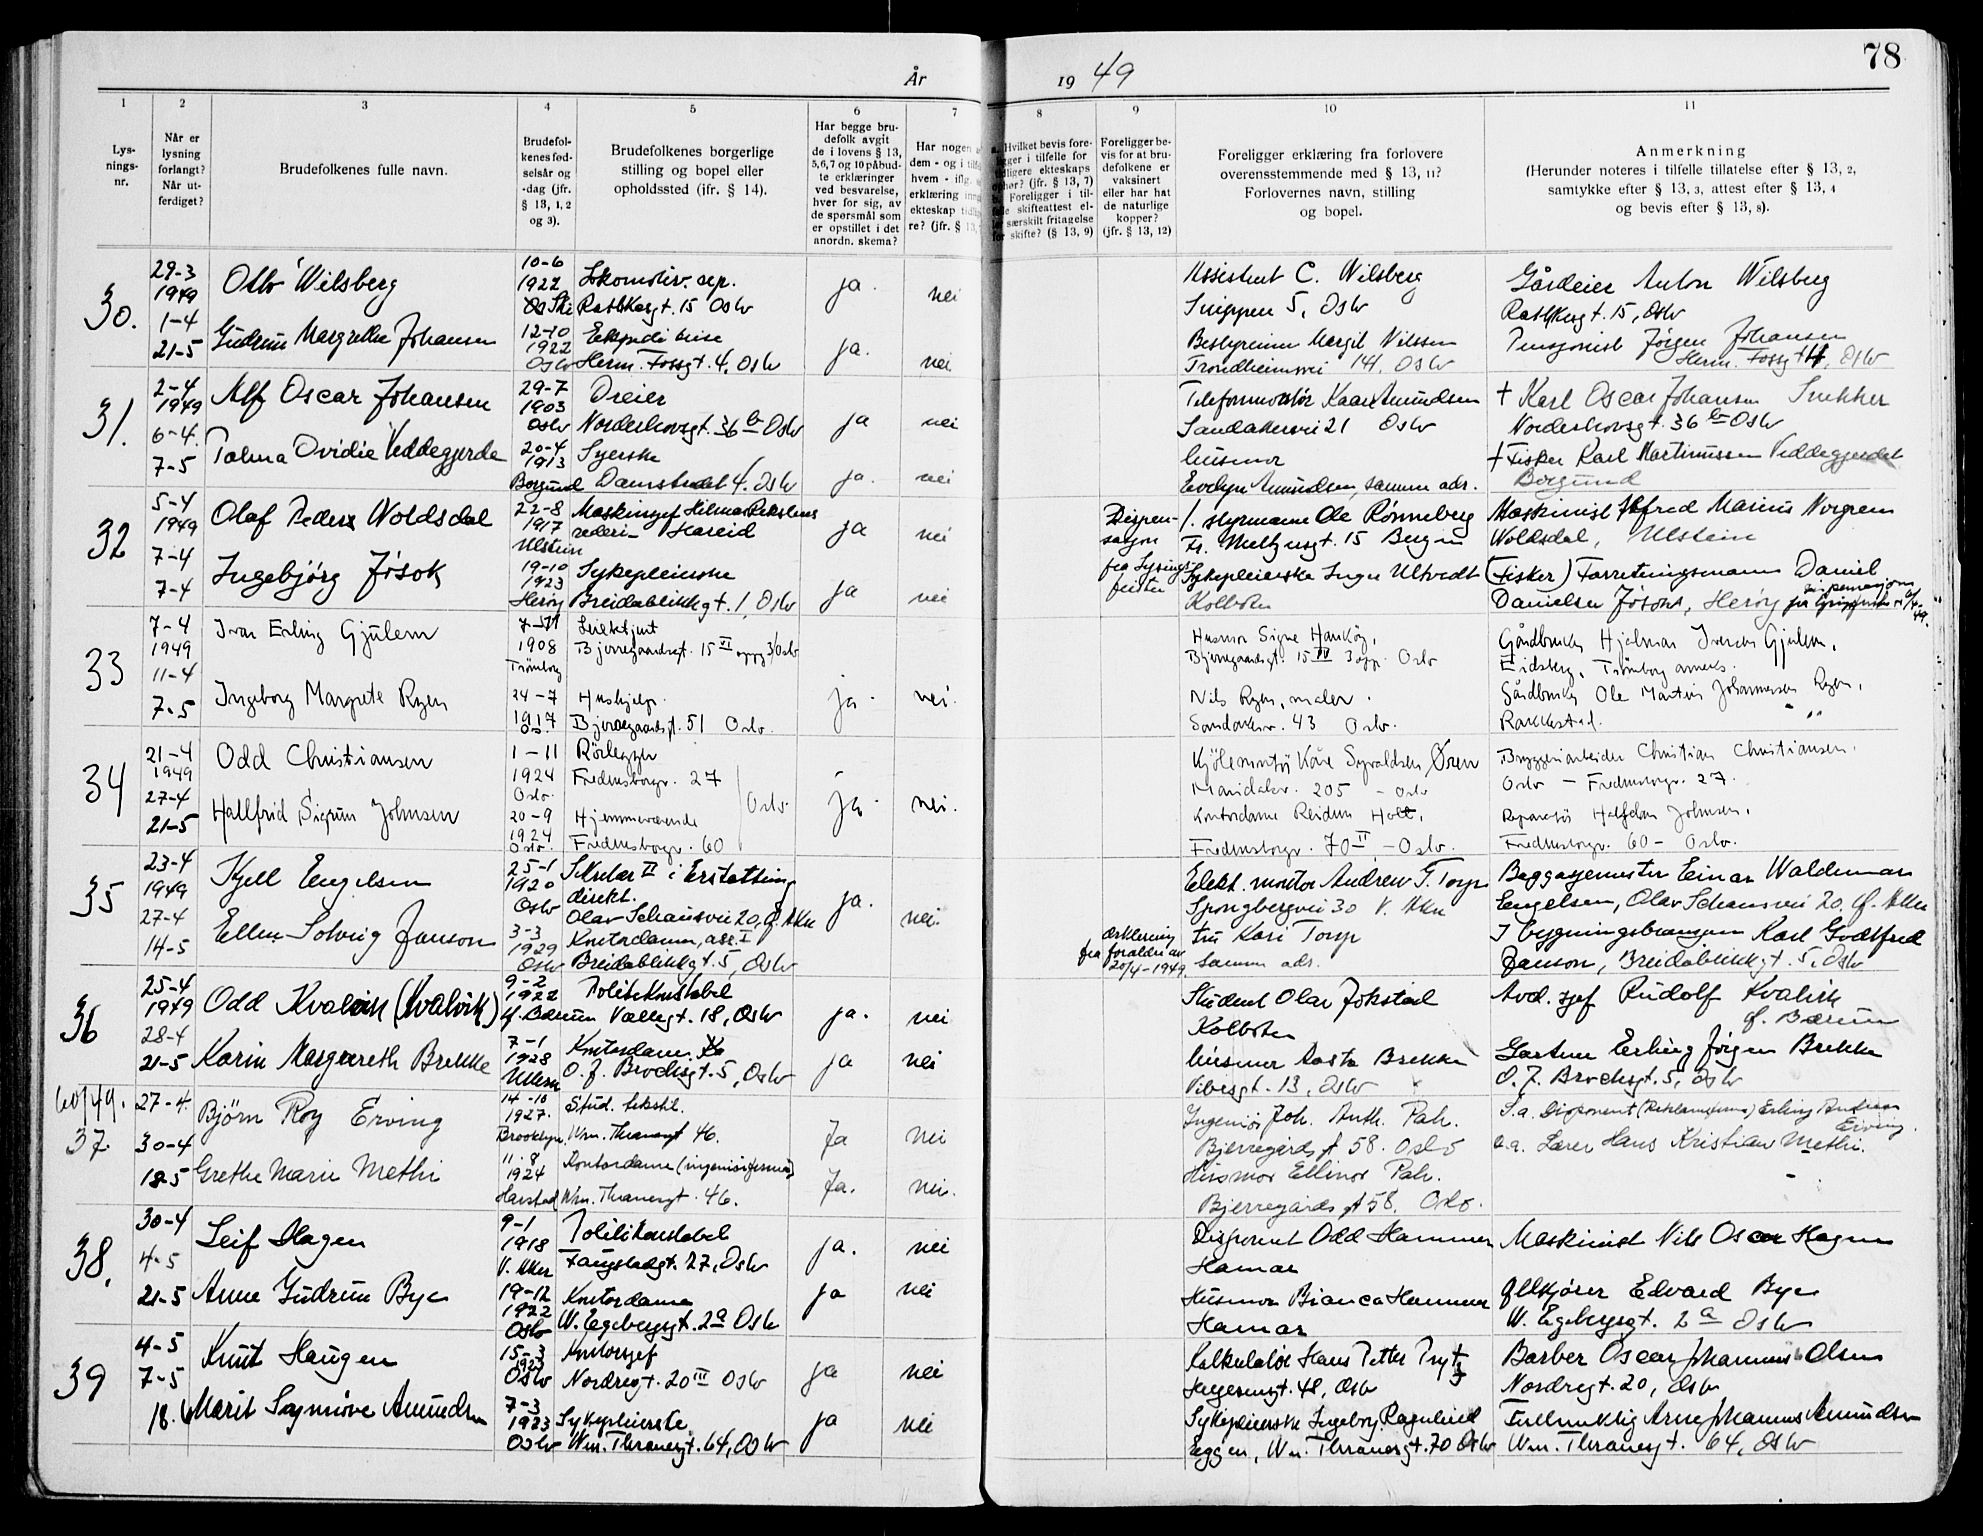 78
År
19 49
1
2
3
4
5
6
7
8
9
10
11
Lys-
nings-
nr.
Når er
lysning
forlangt?
Når ut-
ferdiget?
Brudefolkenes fulle navn.
Brudefol-
kenes fød-
selsår og
-dag (jfr.
§ 13, 1, 2
og 3).
Brudefolkenes borgerlige
stilling og bopel eller
opholdssted (jfr. § 14).
Har begge bru-
defolk avgitt
de i lovens § 13,
5,6,7 og 10 påbud-
te erklæringer
ved besvarelse,
hver for sig, av
de spørsmål som
er opstillet i det
anordn. skema?
Har nogen
dem - og i
hvem - iflg.
erklæring
ekteskap
re? (jfr. § 13,
a. Hvilket bevis fore-
ligger i tilfelle for
tidligere ekteskaps
ophør? (jfr. § 13, 7)
b. Foreligger i til-
felle skifteattest el-
ler særskilt fritagelse
for skifte? (§ 13, 9)
Foreligger be-
vis for at bru-
defolkene er
vaksinert
eller har hat
de naturlige
kopper?
(jfr. § 13, 12)
Foreligger erklæring fra forlovere
overensstemmende med § 13, 11?
Forlovernes navn, stilling
og bopel.
Anmerkning
(Herunder noteres i tilfelle tillatelse efter § 13, 2,
samtykke efter § 13, 3, attest efter § 13, 4
og bevis efter § 13, 8).
30.
29-3
1949
1-4
21-5
Otto Wilsberg
10-6
1922
Lokomotiv. rep.
Rathkesgt. 15 Oslo
ja.
nei
Assistent C. Wilsberg
Snippen 5, Oslo
Gårdeier Anton Wilsberg
Rathkesgt. 15, Oslo
Gudrun Margrethe Johansen
12-10
1922
Oslo
Herm. Fossgt. 4, Oslo
ja.
nei
Bestyrerinne Margit Nilssen
Trondheimsvei 141, Oslo
Pensjonist Jørgen Johansen
Herm. Fossgt 4, Oslo
31.
2-4
1949
6-4.
7-5
Alf Oscar Johansen
29-7
1903
Oslo
Dreier
Norderhovsgt. 36 b Oslo
ja
nei
Telefonmontør Kaare Amundsen
Sandakervei 21 Oslo
+ Karl Oscar Johansen Snekker
Norderhovsgt. 36 b Oslo
Talma Ovidie Veddegjerde
20-4
1913
Borgund
Syerske
Damstredet 4. Oslo
ja.
nei
husmor
Evelyn Amundsen, samme adr.
+ Fisker Karl Martinussen Veddegjerdet
Borgund
32
5-4
1949
7-4
7-4
Olaf Peder Woldsdal
22-8
1917
Ulstein
Maskinsjef Hilmar Rekstens
rederi - Hareid
ja
nei
Dispen-
sasjon
fra lysings
fristen
1. styrmann Ole Rønneberg
Fr. Meltzersgt. 15 Bergen
Maskinist Alfred Marius Norgren
Woldsdal, Ulstein
Ingebjørg Jøsok
19-10
1923
Herøy
Sykepleierske
Breidablikkgt. 1, Oslo
ja
nei
Sykepleierske Inger Ultvedt
Kolbotn
(Fisker) Forretningsmann Daniel
Danielsen Jøsok, Herøy
33
7-4
1949
11-4
7-5
Ivar Erling Gjulem
1908
Trømborg
Bjerregaardsgt. 15 VI oppg 3/Oslo
Husmor Signe Hauköy,
Bjerregaardsgt. 15 IV 3 opp. Oslo
Gårdbruker Hjalmar Iversen Gjulem,
Eidsberg, Trömborg anneks.
Ingeborg Margrete Rygen
24-7
1917
Os.
Hushjelp.
Bjerregaardsgt. 51 Oslo.
ja.
nei.
Nils Rygen, maler.
Sandakerv. 43 Oslo.
Gårdbruker Ole Martin Johannesen Rygen,
Rakkestad.
34
21-4
1949
27-4
21-5
Odd Christiansen
1-11
1924
Oslo.
Rörlegger
Fredensborgv. 27
Oslo.
ja.
nei.
Kjölemontör Kåre Sigvaldsen Øren
Maridalsv. 205 - Oslo
Bryggeriarbeider Christian Christiansen.
Oslo - Fredensborgv. 27.
Hallfrid Sigrun Johnsen
20-9
1924
Oslo.
Hjemmeværende
Fredensborgv. 60
Kontordame Reidun Holt.
Fredensborgv. 70 II - Oslo.
Reparatör Halfdan Johnsen.
Fredensborgv. 60 - Oslo.
35
23-4
1949
27-4
14-5
Kjell Engelsen
25-1
1920
Oslo
Sekretær II i Erstatning
direkt.
Olav Schausvei 20, Ø. Aker
ja.
nei.
Elekt. montør Andrew T. Torp
Spongbergvei 30 V. Aker
Baggasjemester Einar Waldemar
Engelsen, Olav Schausvei 20, Ø. Aker
Ellen Solveig Janson
3-3
1929
Oslo
Kontordame, ass. I
Breidablikkgt. 5, Oslo
erklæring
fra foreldre av
20/4-1949
fru Kari Torp
samme adr.
I bygningsbransjen Karl Godtfred
Janson, Breidablikkgt. 5, Oslo
36
25-4
1949
28-4
21-5
Odd Kvalvik (Kvalvik)
9-2
1922
Ø. Bærum
Politikonstabel
Vallegt. 18, Oslo
ja.
nei
Student Olav Jokstad
Kolbotn
Avd. sjef Rudolf Kvalvik
Ø. Bærum
Karin Margareth Brekke
7-1
1928
Ullern
Kontordame
O. J. Brochsgt. 5, Oslo
ja
nei
husmor Aasta Brekke
Vibesgt. 13, Oslo
Gartner Erling Jørgen Brekke
O. J. Brochsgt. 5, Oslo
60/49.
37.
27-4.
30-4
18-5
Bjørn Roy Erving
14-10
1927.
Brooklyn
Stud. tekstil.
Wm. Thranesgt 46.
Ja
Nei
Ingeniör Joh. Anth. Pah.
Bjerregårds gt 58. Oslo
S.a. Disponent Erling Andreas
Erving.
Grethe Marie Methi
11.8
1924
Harstad
Kontordame (ingeniörfirma)
Wm. Thranesgt. 46.
Ja.
Nei.
Husmor Ellinor Pah.
Bjerregårds gt 58. Oslo.
D.a. Lærer Hans Kristian Methi.
38.
30-4
4-5
21-5
Leif Hagen
9-1
1918
V. Aker
Politikonstabel
Faugstadgt. 27, Oslo
ja.
nei
Disponent Odd Hammer
Hamar
Maskinist Nils Oscar Hagen
Anne Gudrun Bye
19-12
1922
Oslo
Kontordame
W. Egebergsgt. 2 a Oslo
ja
nei
Husmor Bianca Hammer
Hamar
Ølkjører Edvard Bye
W. Egebergsgt. 2 a Oslo
39
4-5
7-5
18.6
Knut Haugen
15-3
1923
Oslo
Kontorsjef
Nordregt. 20 III Oslo
ja
nei
Kalkulatør Hans Petter Prytz
Hegermannsgt. 48, Oslo
Barber Oscar Johannes Olsen
Nordregt. 20, Oslo
Marit Synnøve Amundsen
7-3
1923
Oslo
Sykepleierske
Wm. Thranesgt. 64, Oslo
ja
nei
Sykepleierske Ingeborg Ragnhild
Eggen, Wm. Thranesgt. 70 Oslo
Fullmektig Arne Johannes Amundsen
Wm. Thranesgt. 64, Oslo